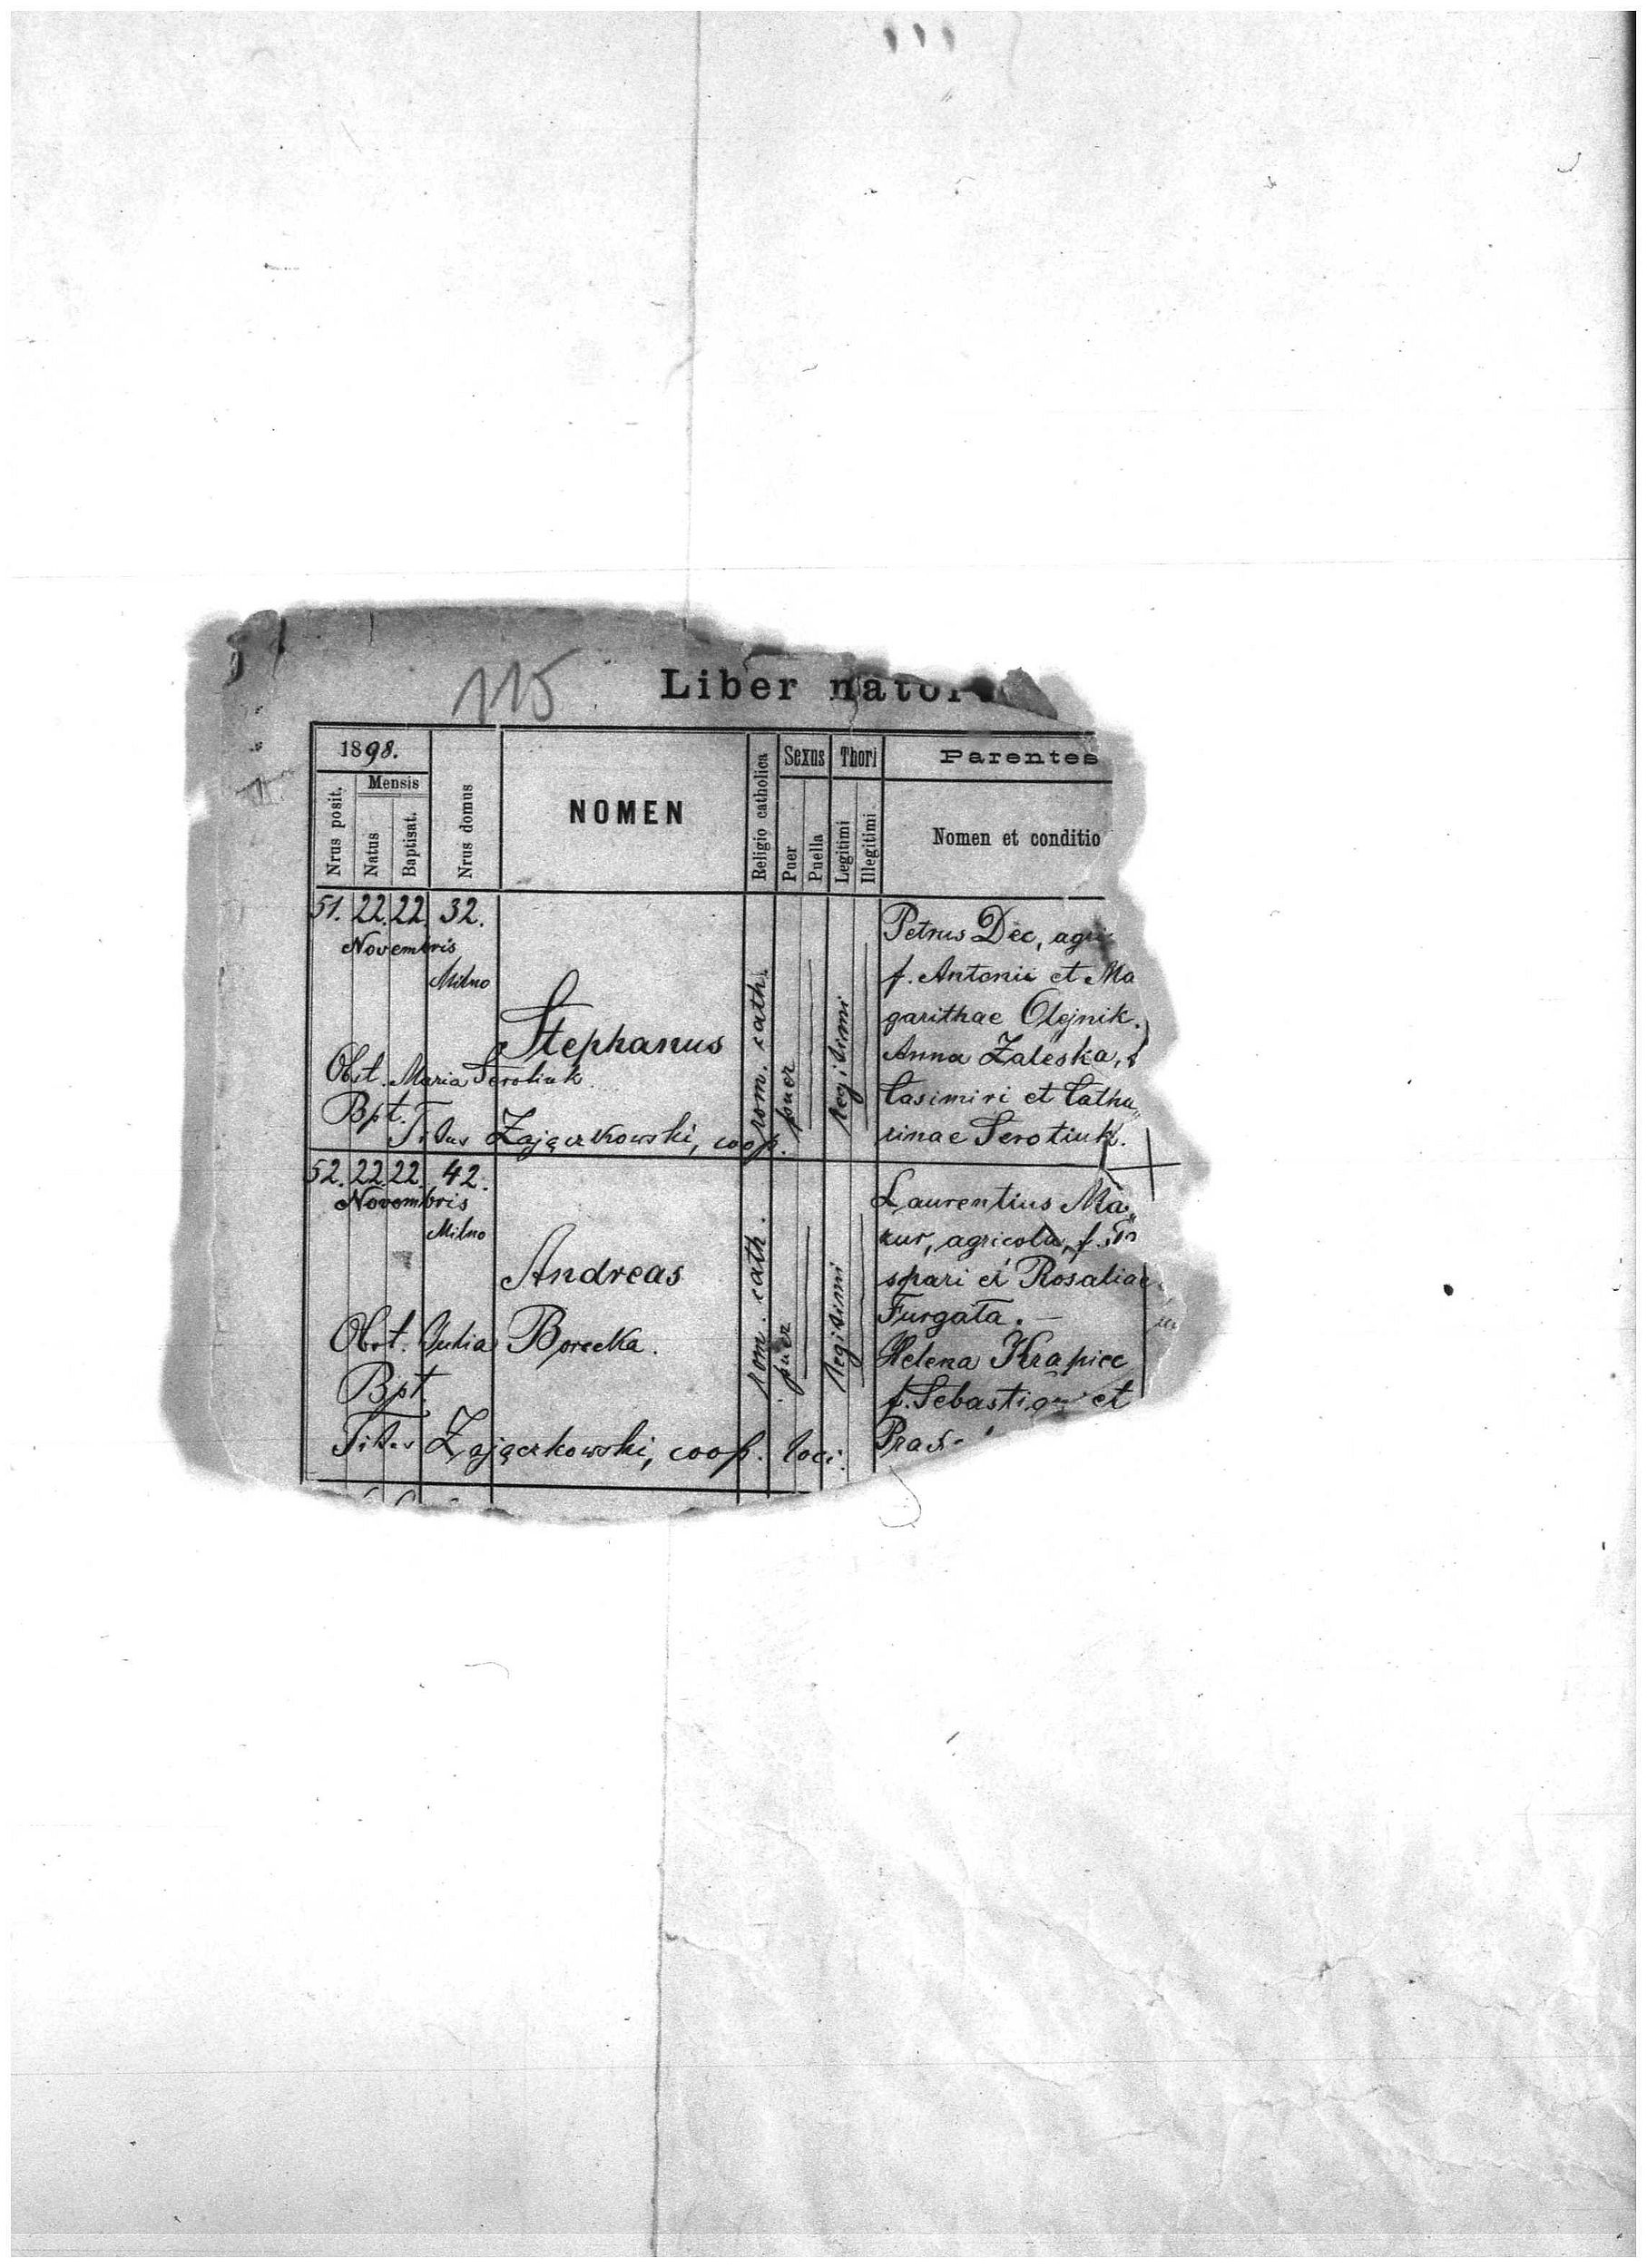 115
Liber nator
1898.
Mensis
Nrus posit.
Natus
Baptisat.
Nrus domus
NOMEN
Religio catholica
Sexus
Puer
Puella
Thori
Legitimi
Illegitimi
Parentes
Nomen et conditio
51. 22. 22. 32.
Novembris
Milno
Stephanus
Obst. Maria Serotiuk.
Bpt.
Titus Zajączkowski, coop.
rom. cath.
puer
legitimi
Petrus Dec, agri
f. Antonii et Ma
garithae Olejnik.
Anna Zaleska, f
Casimiri et Catha„
rinae Serotiuk.
52. 22. 22. 42.
Novembris
Milno
Andreas
Obst. Julia Borecka.
Bpt.
Titus Zajączkowski, coop. loci.
rom. cath.
puer
legitimi
Laurentius Ma„
zur, agricola, f.
spari et Rosaliae
Furgata. —
Helena Krąpiec
f. Sebastiani et